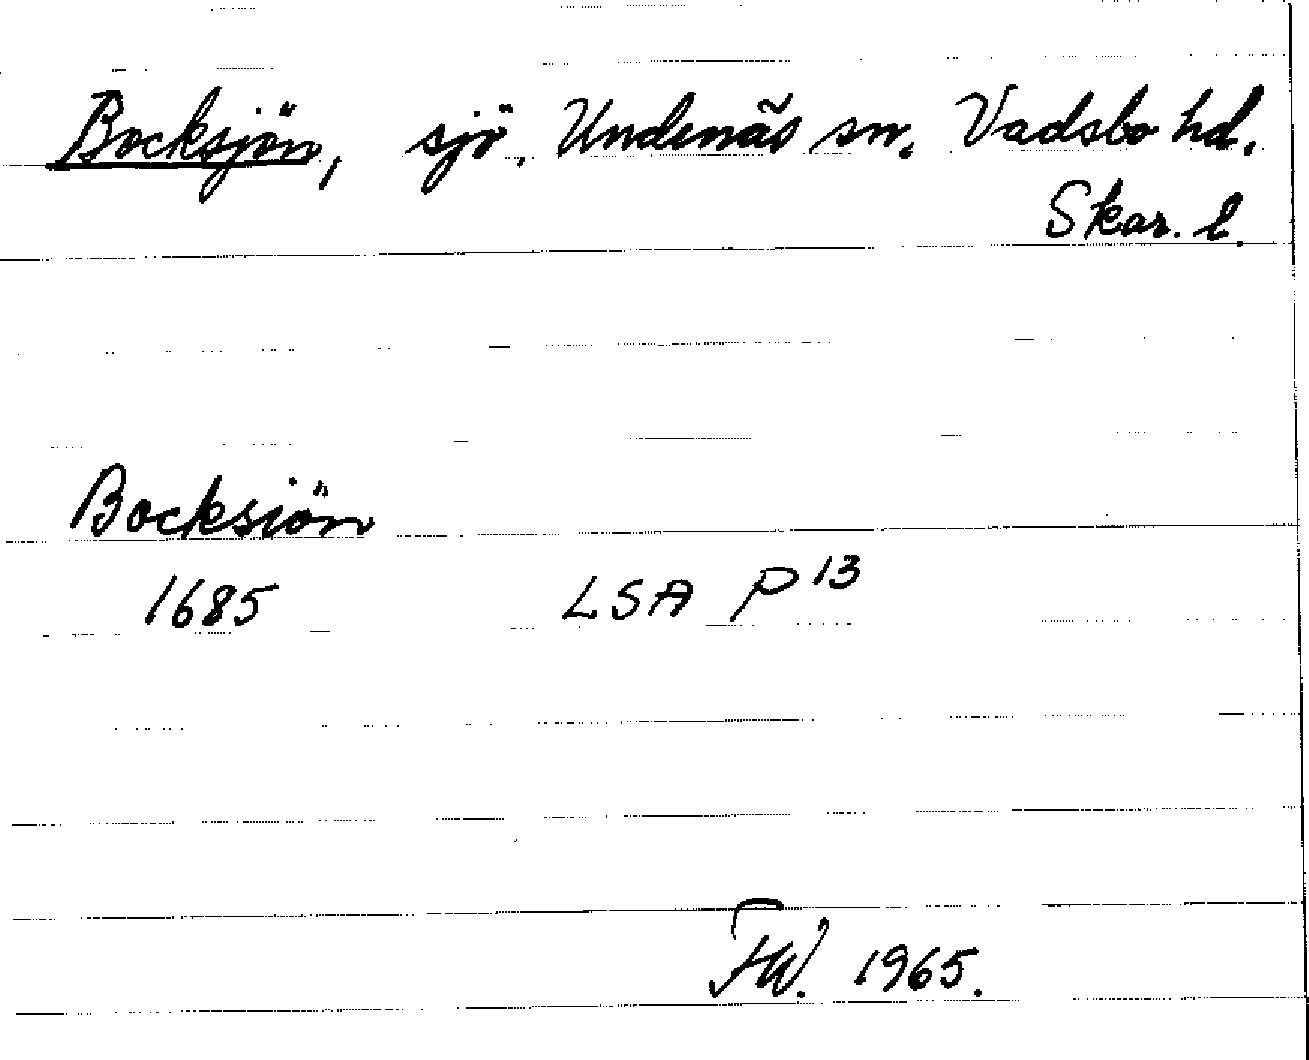 Bocksjön, sjö. Undenäs sn. Vadsbo hd.
Skar. l.
Bocksiön
1685 LSA P 13
FW. 1965.